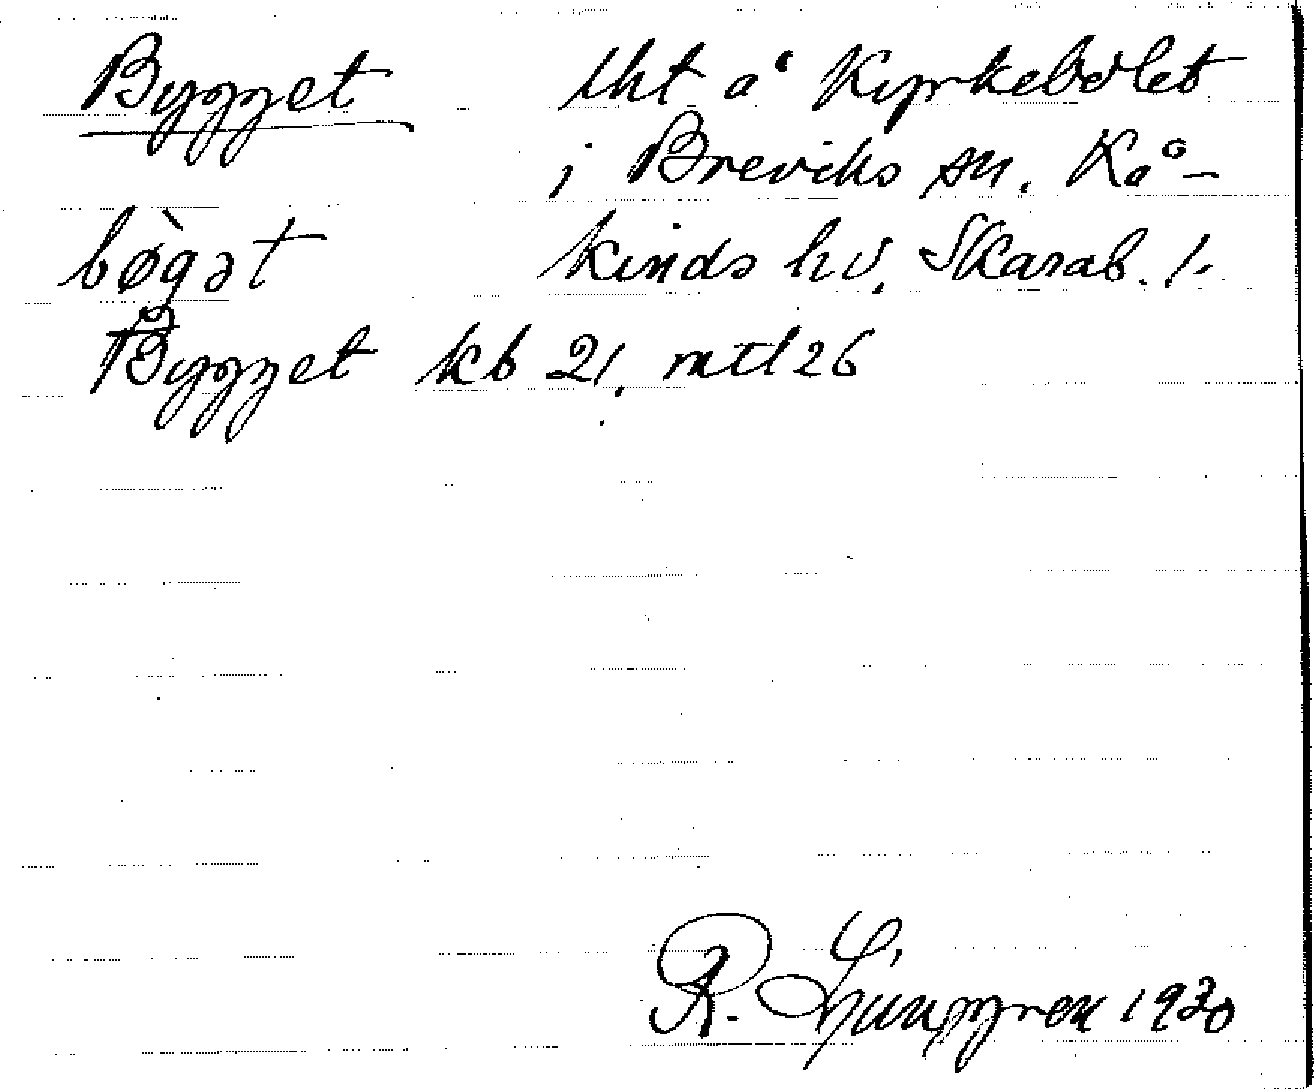 Bygget tht å Kyrkebolet
i Breviks sn. Kå-
bø̀gət kinds hd, Skarab. l.
Bygget kb 21, mtl 26
R. Ljunggren 1930